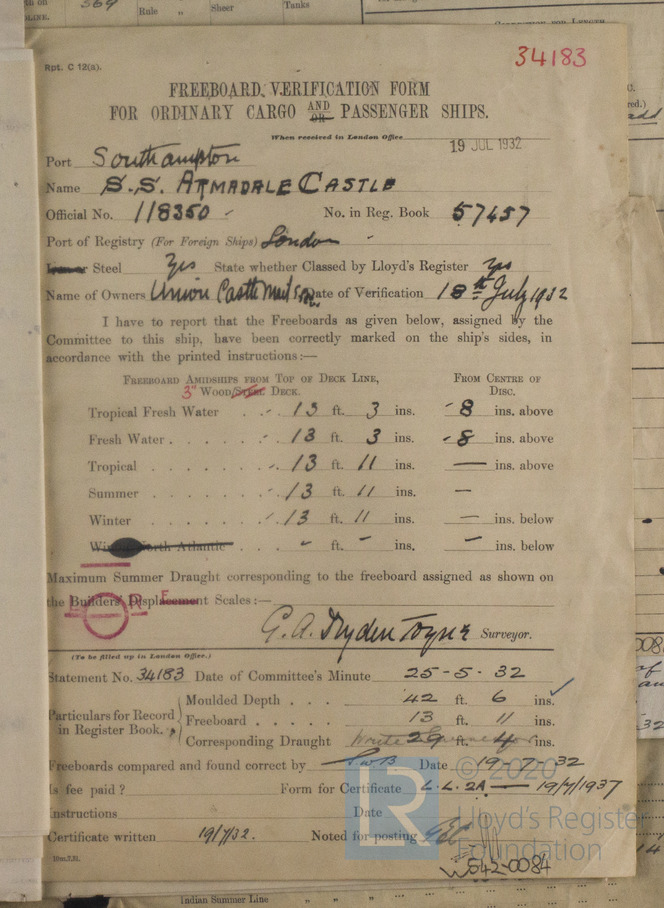 369
Rule „ Sheer Tanks
Rpt. C 12(a).
34183
FREEBOARD VERIFICATION FORM
FOR ORDINARY CARGO AND OR PASSENGER SHIPS.
When received in London Office 19 JUL 1932
Port Southampton
Name S.S. ARMADALE CASTLE
Official No. 118350 No. in Reg. Book 57457
Port of Registry (For Foreign Ships) London
Steel Yes State whether Classed by Lloyd's Register Yes
Name of Owners Union Castle Mail S.S. Co. Date of Verification 18th July 1932
I have to report that the Freeboards as given below, assigned by the
Committee to this ship, have been correctly marked on the ship's sides, in
accordance with the printed instructions:—
FREEBOARD AMIDSHIPS FROM TOP OF DECK LINE, FROM CENTRE OF
3" WOOD/STEEL DECK. DISC.
Tropical Fresh Water 13 ft. 3 ins. 8 ins. above
Fresh Water 13 ft. 3 ins. 8 ins. above
Tropical 13 ft. 11 ins. — ins. above
Summer 13 ft. 11 ins. —
Winter 13 ft. 11 ins. — ins. below
Winter North Atlantic - ft. - ins. - ins. below
Maximum Summer Draught corresponding to the freeboard assigned as shown on
the Builders' Displacement Scales:—
Surveyor.
(To be filled up in London Office.)
Statement No. 34183 Date of Committee's Minute 25-5-32
Moulded Depth 42 ft. 6 ins.
Particulars for Record in Register Book. Freeboard 13 ft. 11 ins.
Corresponding Draught 29 ft. 4 ins.
Freeboards compared and found correct by Date 19-7-32
Is fee paid? Form for Certificate L.L. 2A — 19/7/1937
Instructions Date
Certificate written 19/7/32. Noted for posting
10m.7.31.
© 2020
LR
Lloyd's Register
Foundation
W542-0084
Indian Summer Line